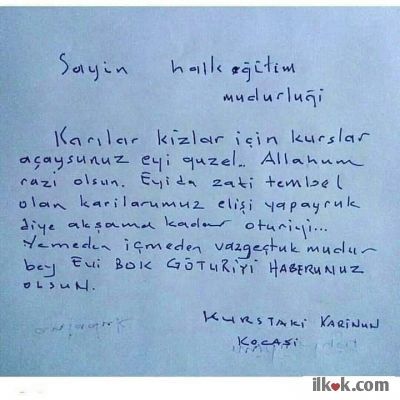 Sayin halk eğitim
mudurluği
Karılar kizlar için kurslar
açaysunuz eyi guzel.. Allahum
razi olsun. Eyi da zati tembel
olan karilarumuz elişi yapayruk
diye akşama kadar oturiyi...
Yemeden içmeden vazgeçtuk mudur
bey Evi BOK GÖTURİYİ HABERUNUZ
OLSUN.
KURSTAKİ KARİNUN
KOCASİ
ilkok.com